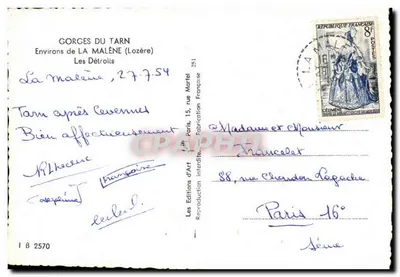 GORGES DU TARN
Environs de LA MALÈNE (Lozère)
Les Détroits
La Malène, 27.7.54
Tarn après Cevennes
Bien affectueusement
Françoise
I B 2570
Les Editions d'Art Paris, 15, rue Martel
Reproduction interdite Fabrication Française
251
RÉPUBLIQUE FRANÇAISE
8F
LA MAL
Madame et Monsieur
88, rue Chardon Lagache
Paris 16e
Seine